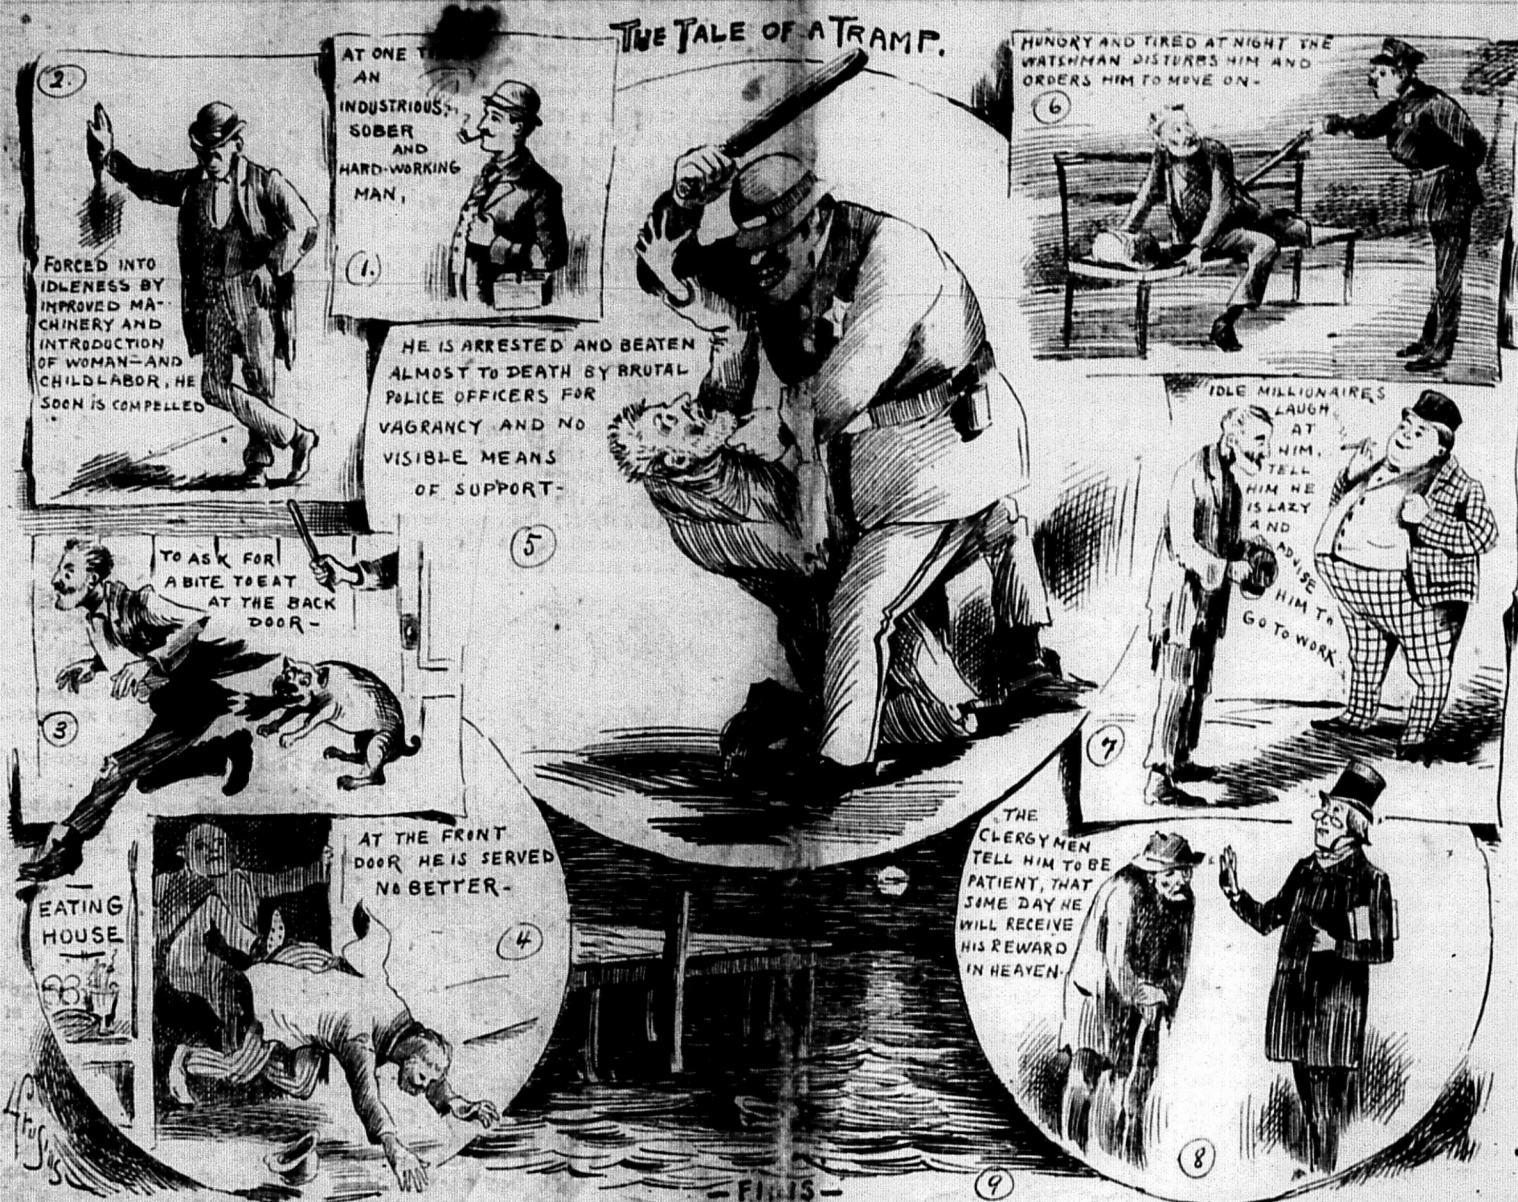 THE TALE OF A TRAMP.
AT ONE
AN
INDUSTRIOUS,
SOBER
AND
HARD-WORKING
MAN,
1.
2.
FORCED INTO
IDLENESS BY
IMPROVED MA-
CHINERY AND
INTRODUCTION
OF WOMAN-AND
CHILD LABOR, HE
SOON IS COMPELLED
TO ASK FOR
A BITE TO EAT
AT THE BACK
DOOR-
3
AT THE FRONT
DOOR HE IS SERVED
NO BETTER-
4
EATING
HOUSE
HE IS ARRESTED AND BEATEN
ALMOST TO DEATH BY BRUTAL
POLICE OFFICERS FOR
VAGRANCY AND NO
VISIBLE MEANS
OF SUPPORT-
5
HUNGRY AND TIRED AT NIGHT THE
WATCHMAN DISTURBS HIM AND
ORDERS HIM TO MOVE ON-
6
IDLE MILLIONAIRES
LAUGH
AT
HIM,
TELL
HIM HE
IS LAZY
AND
ADVISE
HIM TO
GO TO WORK.
7
THE
CLERGYMEN
TELL HIM TO BE
PATIENT, THAT
SOME DAY HE
WILL RECEIVE
HIS REWARD
IN HEAVEN-
8
9
-FINIS-
Argus